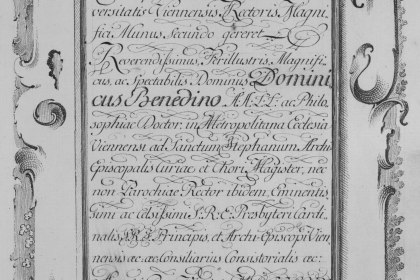 versitatis Viennensis Rectoris Magni
fici Munus Secundo gereret
Reverendissimus, Perillustris, Magnifi
cus, ac Spectabilis Dominus Domini
cus Benedino AA.LL. ac Philo
sophiae Doctor, in Metropolitana Ecclesia
Viennensi ad Sanctum Stephanum, Archi
Episcopalis Curiae, et Chori Magister, nec
non Parochiae Rector ibidem, Eminentis
simi ac Celsissimi S.R.E. Presbyteri Cardi
nalis, S.R.I. Principis, et Archi-Episcopi Vien
nensis ac Consiliarius Consistorialis ac: